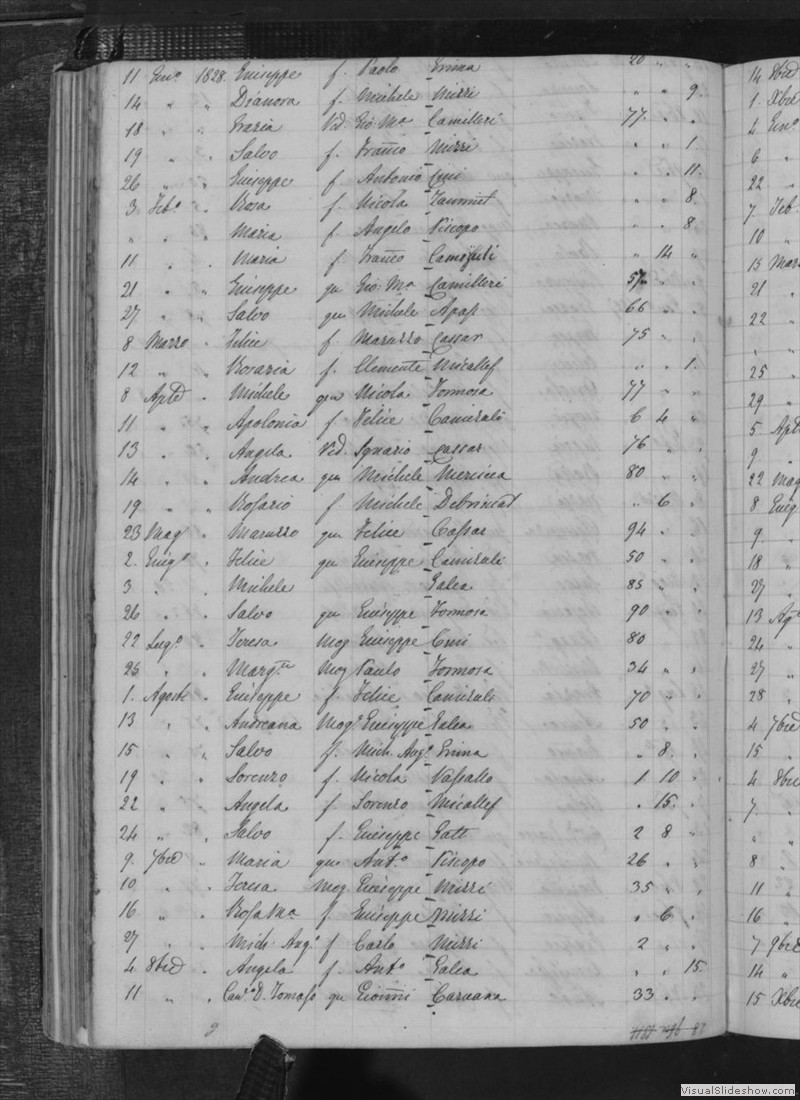 11 Genº 1828. Giuseppe f. Paolo Emma 20 " "
14 " " Dianora f. Michele Mizzi " " 9.
18 " " Grazia Vid. Gio: Mª Camilleri 77. " "
19 " " Salvo f. Franco Mizzi " " 1.
26 " " Giuseppe f. Antonio Cini " " 11.
3 Febº " Rosa f. Nicola Tammut " " 8.
" " " Maria f. Angelo Piscopo " " 8
11 " " Maria f. Franco " 14 "
21 " " Giuseppe qu Gio: Mª Camilleri 57. " "
27 " " Salvo qu Michele Apap 66 " "
8 Marzo " Felice f. Maruzzo Cassar 75 " "
12 " " Rosaria f. Clemente Micallef " " 1.
8 Aple " Michele qu Nicola Formosa 77 " "
11 " " Apolonia f. Felice Camisuli 6 4 "
13 " " Angela Vid. Ignazio Cassar 76 " "
14 " " Andrea qu Michele Mercieca 80 " "
19 " " Rosario f. Michele Debrincat " 6 "
23 Mag " Maruzzo qu Felice Cassar 94 " "
2. Giugº " Felice qu Giuseppe Camisuli 50 " "
3 " " Michele Galea 85 " "
26 " Salvo qu Giuseppe Formosa 90 " "
22 Lugº " Teresa Mog Giuseppe Cini 80
25 " " Margta Mog Paulo Formosa 34 " "
1. Agosto " Giuseppe f. Felice Camisuli 70 " "
13 " " Andreana Mogº Giuseppe Galea 50 " "
15 " " Salvo f. Mich. Angº Emma " 8. "
19 " " Lorenzo f. Nicola Vassallo 1 10 "
22 " " Angela f Lorenzo Micallef " 15. "
24 " " Salvo f. Giuseppe Gatt 2 8 "
9. 7bre " Maria qu Antº Piscopo 26 " "
10 " " Teresa Mog Giuseppe Mizzi 35 " "
16 " " Rosa Mª f. Giuseppe Mizzi " 6 "
27 " " Mich. Angº f Carlo Mizzi 2 " "
4 8bre " Angela f. Antº Galea " " 15.
11 " " Canº D. Tomaso qu Gionni Caruana 33 " "
14 8bre
1. Xbre
4 Genº
6 "
22 "
7. Feb
10 "
15 Mar
21 "
22 "
" "
25 "
29 "
5 Apl
9 "
22 Mag
8 Giug
9. "
18 "
27 "
13 Ag
24 "
27 "
28 "
4 7bre
15 "
4 8bre
7. "
" "
8 "
11 "
16 "
7 9bre
14 "
15 Xbre
VisualSlideshow.com